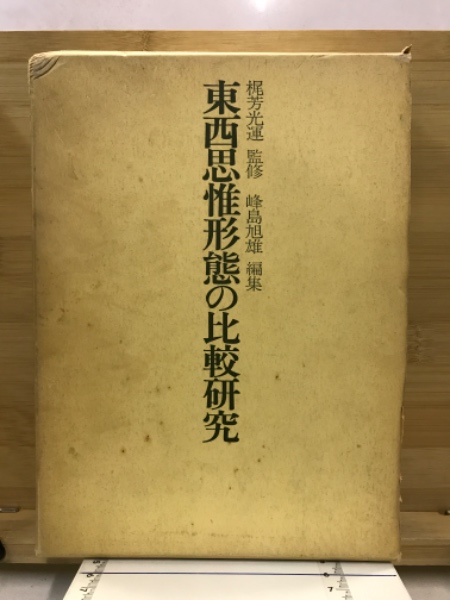 梶芳光運 監修 峰島旭雄 編集
東西思惟形態の比較研究